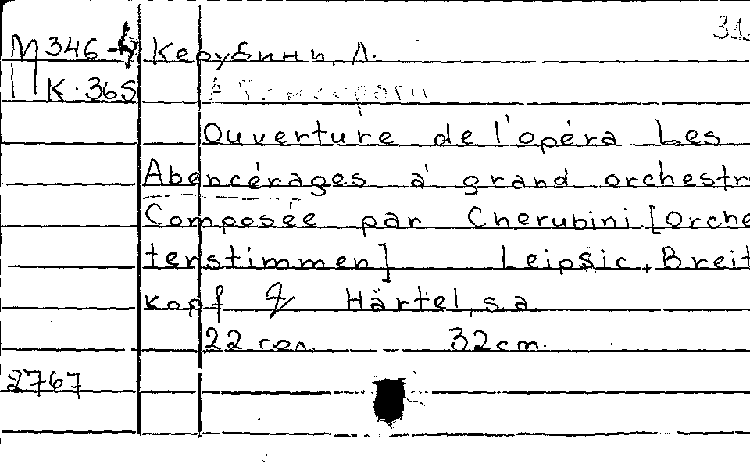 31
М 346-4 Керубини, Л.
К-365
Ouverture de l'opéra Les
Abencérages à grand orchestr
Composée par Cherubini [Orche
terstimmen] Leipsic, Breit
kopf & Härtel, s.a
22 гол. 32 cm.
2767